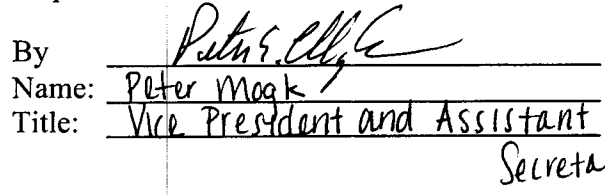 By
Name: Peter Mogk
Title: Vice President and Assistant
Secreta